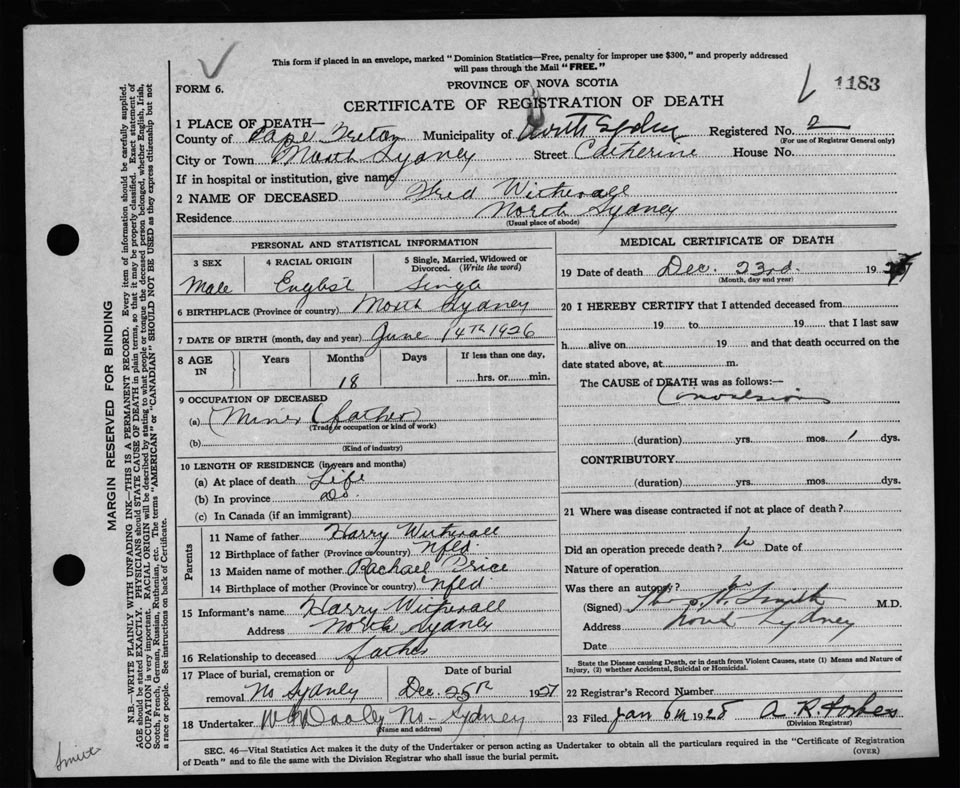 This form if placed in an envelope, marked "Dominion Statistics—Free, penalty for improper use $300," and properly addressed
will pass through the Mail "FREE."
FORM 6.
PROVINCE OF NOVA SCOTIA
1183
CERTIFICATE OF REGISTRATION OF DEATH
1 PLACE OF DEATH—
County of Cape Breton Municipality of North Sydney Registered No. 2
(For use of Registrar General only)
City or Town North Sydney Street Catherine House No.
If in hospital or institution, give name
2 NAME OF DECEASED Fred Witherall
Residence North Sydney
(Usual place of abode)
PERSONAL AND STATISTICAL INFORMATION
3 SEX 4 RACIAL ORIGIN 5 Single, Married, Widowed or Divorced. (Write the word)
Male English Single
6 BIRTHPLACE (Province or country) North Sydney
7 DATE OF BIRTH (month, day and year) June 14th 1926
8 AGE IN Years Months Days If less than one day,
18 hrs. or min.
9 OCCUPATION OF DECEASED
(a) Miner (father)
(Trade, occupation or kind of work)
(b)
(Kind of industry)
10 LENGTH OF RESIDENCE (in years and months)
(a) At place of death Life
(b) In province Do.
(c) In Canada (if an immigrant)
Parents
11 Name of father Harry Witherall
12 Birthplace of father (Province or country) Nfld
13 Maiden name of mother Rachael Price
14 Birthplace of mother (Province or country) Nfld.
15 Informant's name Harry Witherall
Address North Sydney
16 Relationship to deceased father
17 Place of burial, cremation or Date of burial
removal No Sydney Dec. 25th 1927
18 Undertaker No. Sydney
(Name and address)
MEDICAL CERTIFICATE OF DEATH
19 Date of death Dec. 23rd. 19
(Month, day and year)
20 I HEREBY CERTIFY that I attended deceased from
19 to 19 that I last saw
h alive on 19 and that death occurred on the
date stated above, at m.
The CAUSE of DEATH was as follows:—
Convulsions
(duration) yrs. mos. 1 dys.
CONTRIBUTORY
(duration) yrs. mos. dys.
21 Where was disease contracted if not at place of death?
Did an operation precede death? Date of
Nature of operation
Was there an autopsy?
(Signed) Smith M.D.
Address North Sydney
Date
State the Disease causing Death, or in death from Violent Causes, state (1) Means and Nature of
Injury, (2) whether Accidental, Suicidal or Homicidal.
22 Registrar's Record Number
23 Filed Jan 6th 1928 A. R. Forbes
(Division Registrar)
SEC. 46—Vital Statistics Act makes it the duty of the Undertaker or person acting as Undertaker to obtain all the particulars required in the "Certificate of Registration
of Death" and to file the same with the Division Registrar who shall issue the burial permit.
(OVER)
MARGIN RESERVED FOR BINDING
N.B.—WRITE PLAINLY WITH UNFADING INK—THIS IS A PERMANENT RECORD. Every item of information should be carefully supplied.
AGE should be stated EXACTLY. PHYSICIANS should STATE CAUSE OF DEATH in plain terms, so that it may be properly classified. Exact statement of
OCCUPATION is very important. RACIAL ORIGIN will be described by stating to what people or tongue the deceased person belonged, whether English, Irish,
Scotch, French, German, Russian, Ruthenian, etc. The terms "AMERICAN" or "CANADIAN" SHOULD NOT BE USED as they express citizenship but not
a race or people. See instructions on back of Certificate.
Smith